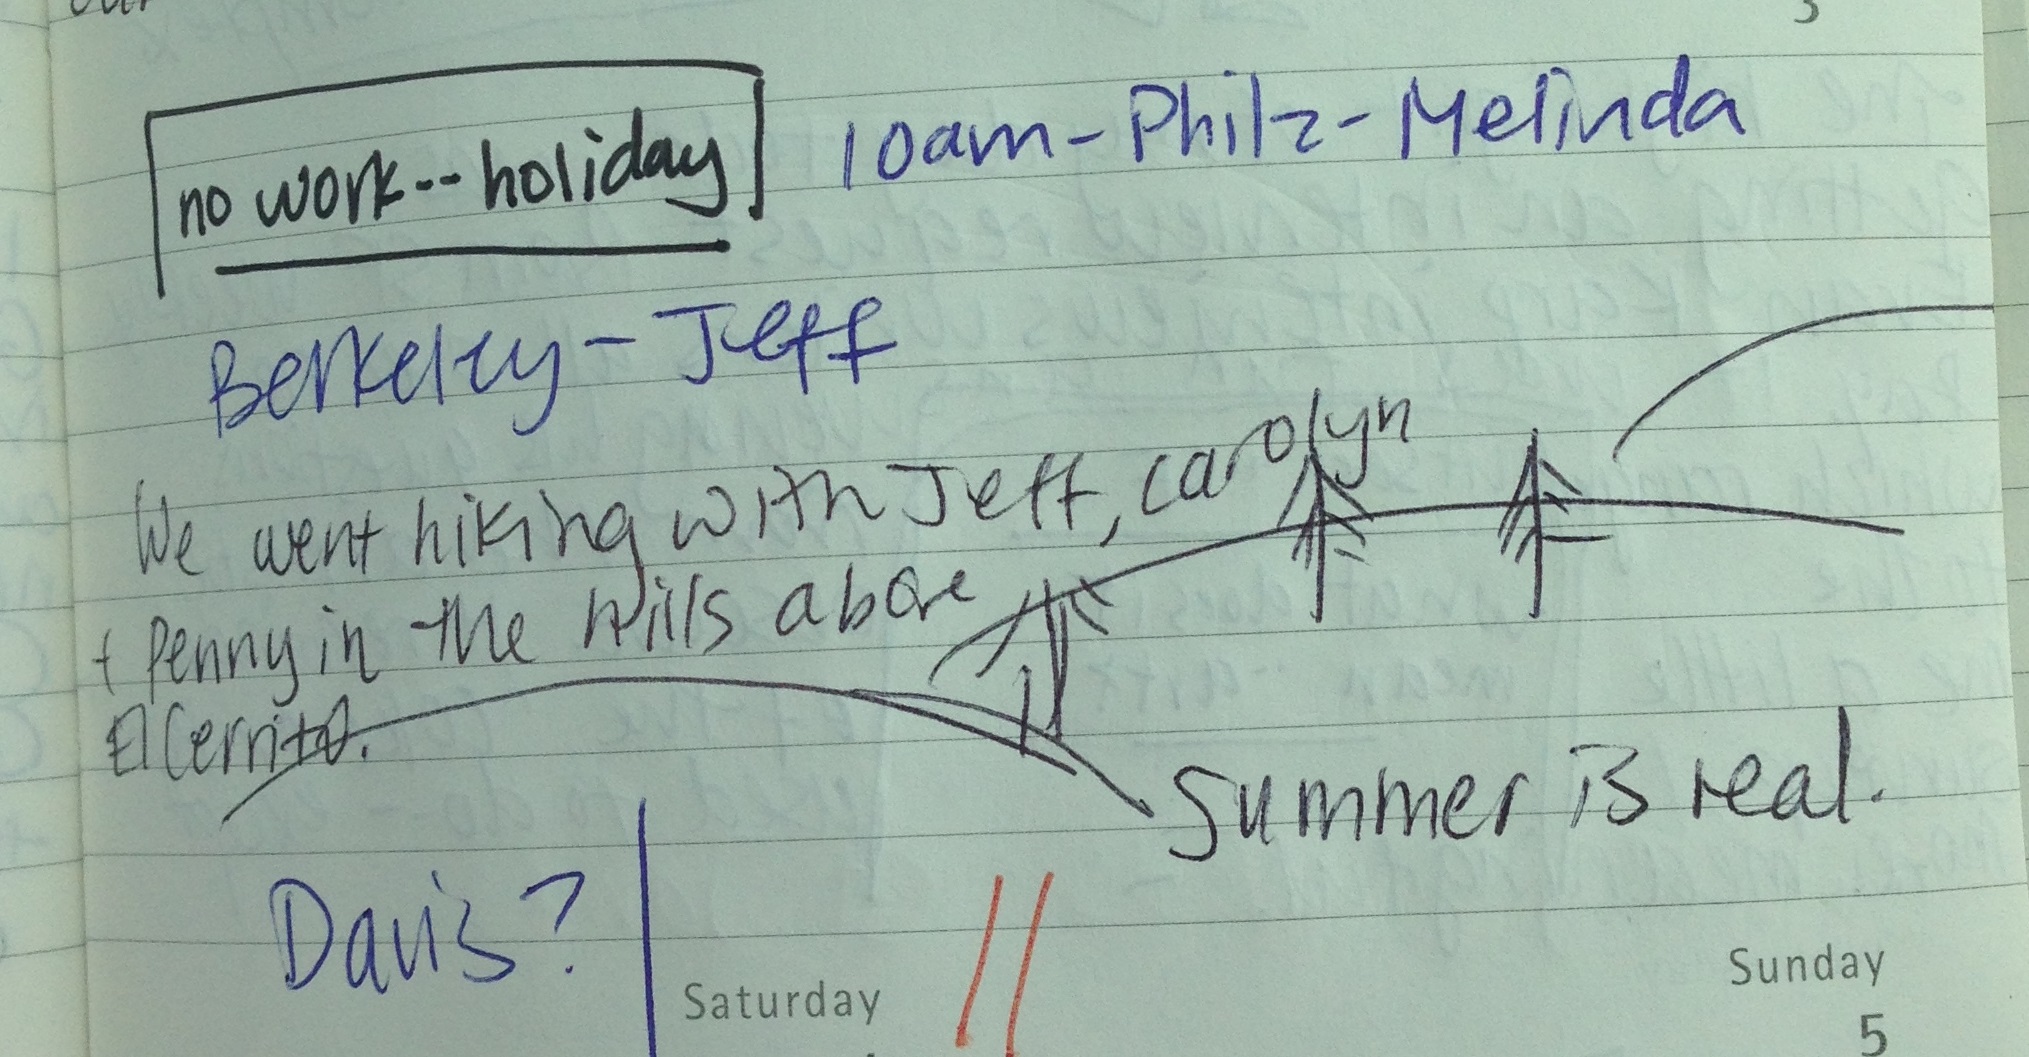 3
no work -- holiday
10am - Philz - Melinda
Berkeley - Jeff
We went hiking with Jeff, Carolyn
+ Penny in the hills above
El Cerrito.
Summer is real.
Davis?
Saturday
Sunday
5